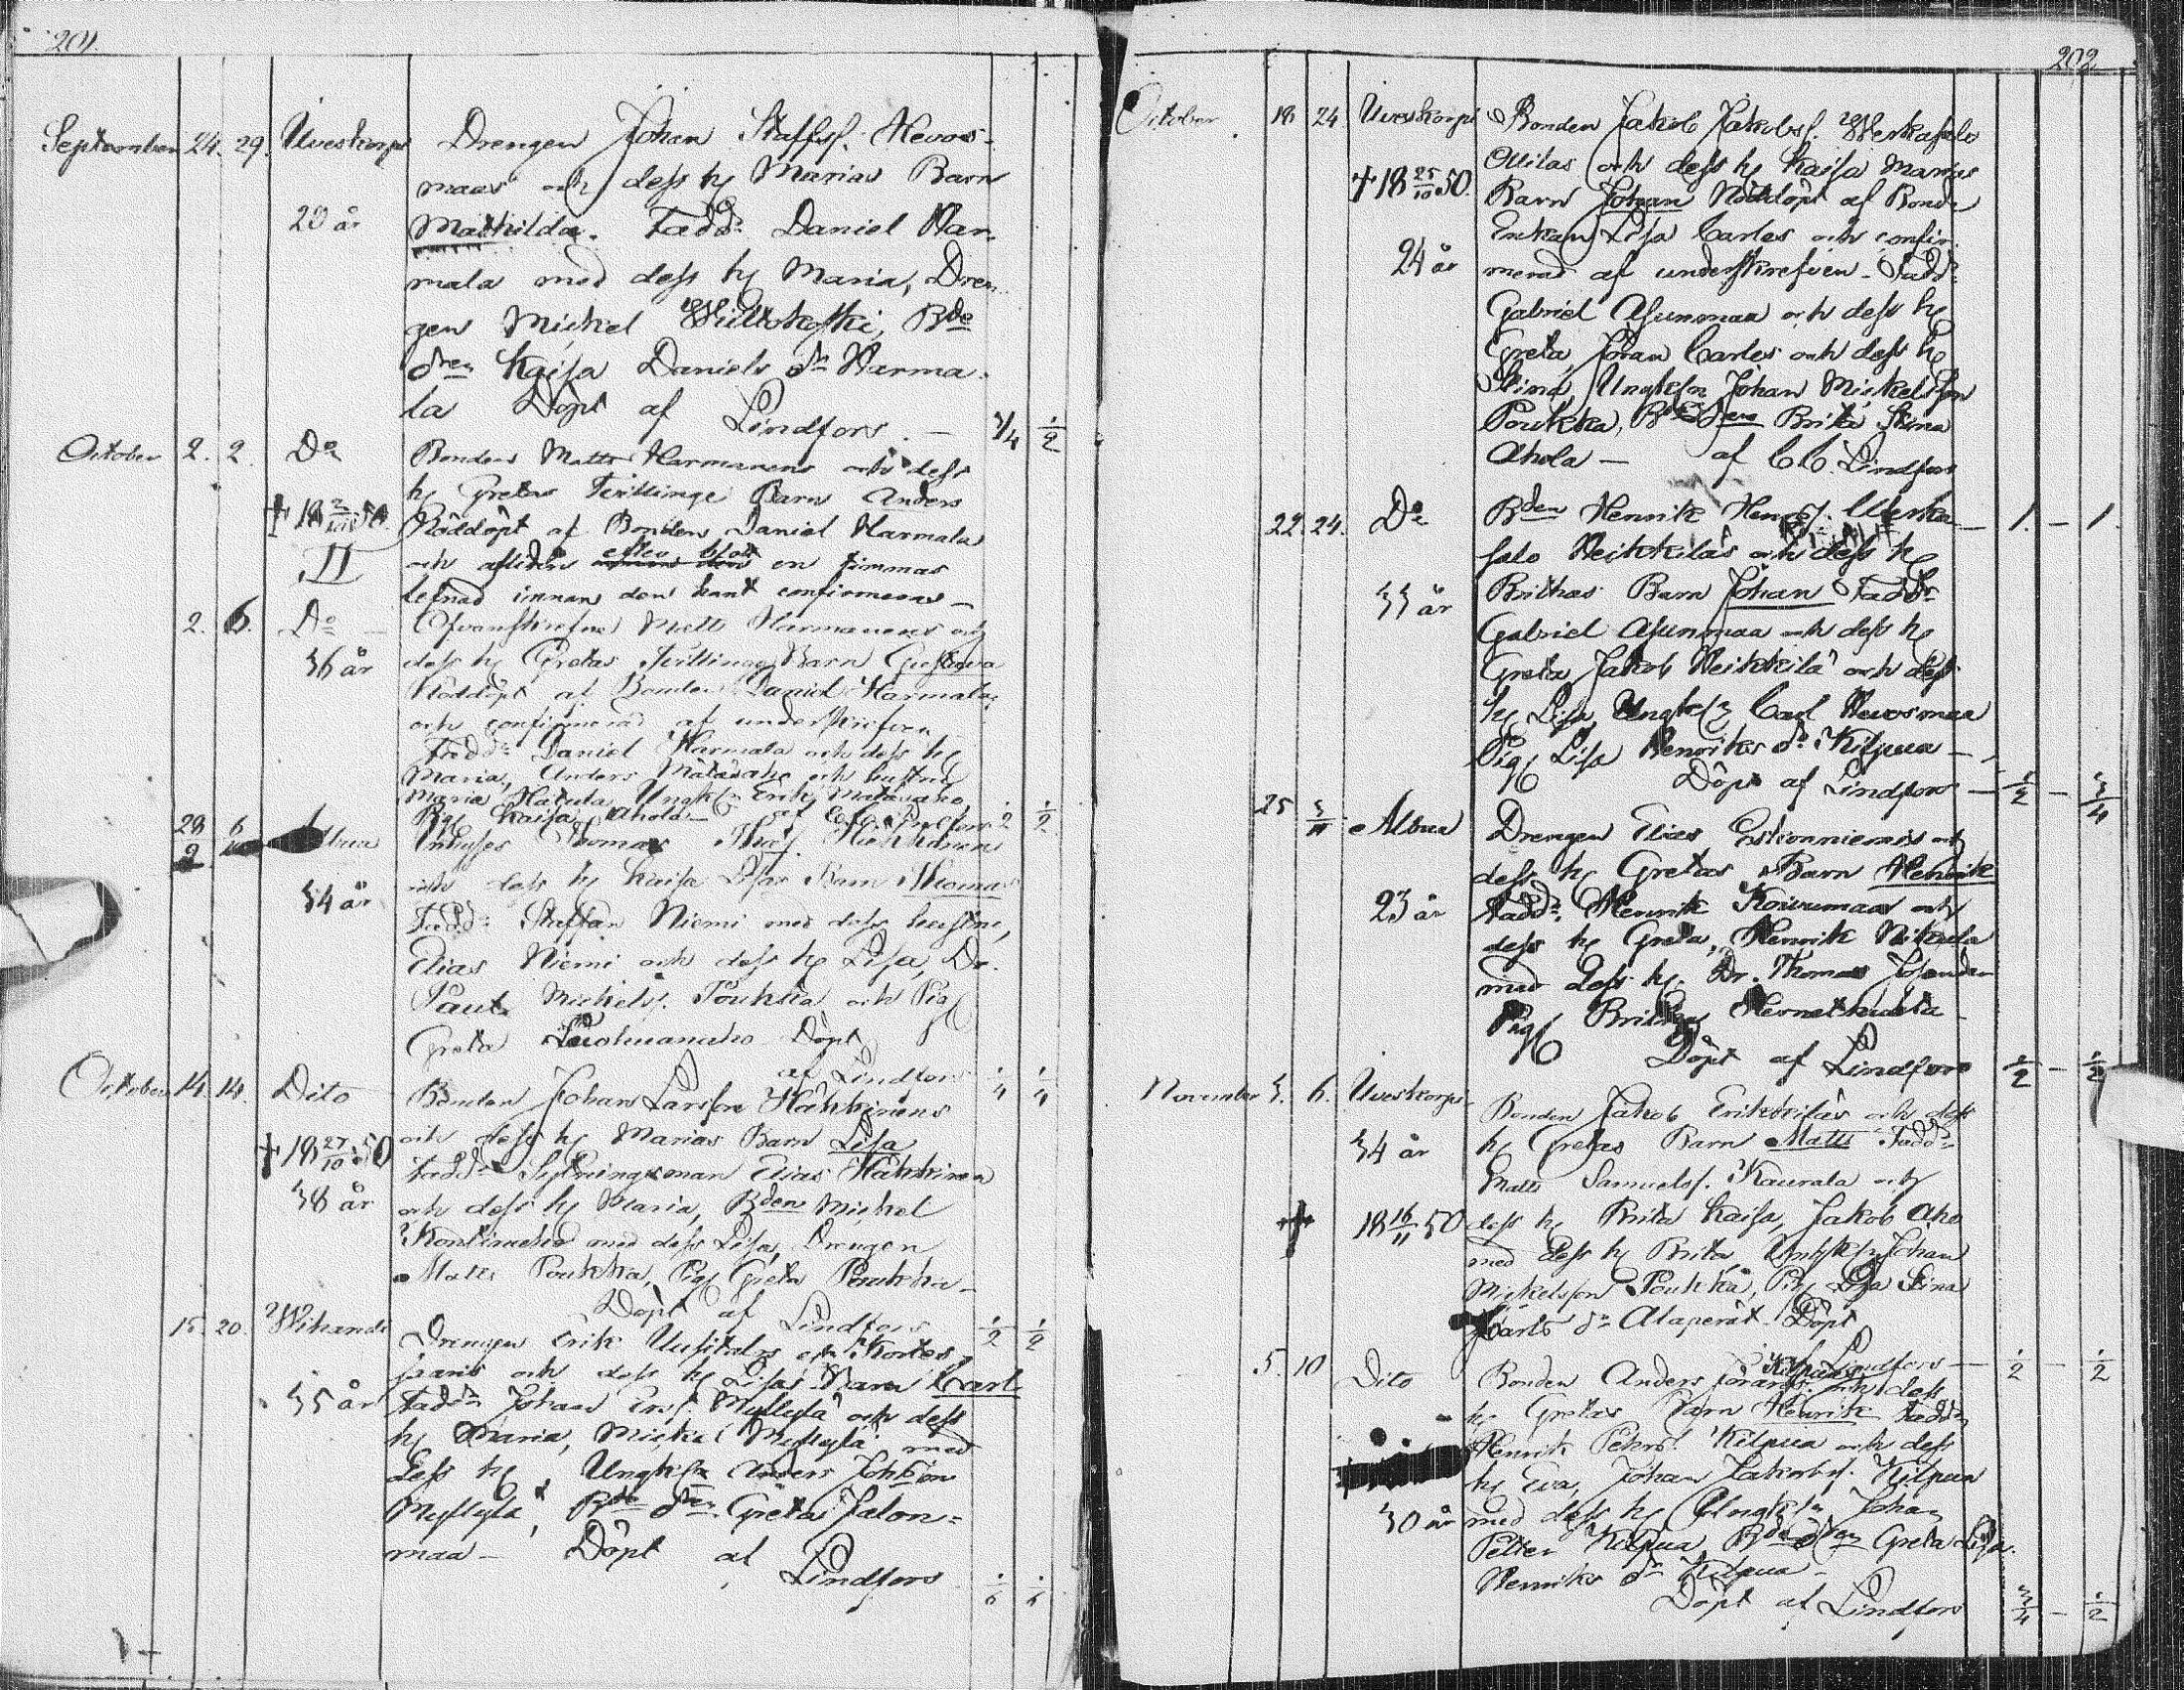 201.
September 24. 29. Uveskorpi Drengen Johan Staffsf. Hevos-
maas och dess h Marias Barn
20 år Mathilda. Fadd: Daniel Har-
mala med dess h Maria, Dren-
gen Mickel Bde
dren Kaisa Daniels dr Harma-
la Döpt af Lindfors. — 1/4 1/2
October 2. 2. Do Bonden Matts Harmanens och dess
h Gretas Tvillinge Barn Anders
+ 18 2/10 50. Nöddöpt af Bonden Daniel Harmala
II och afliden efter blott en timmas
lefnad innan den hant confirmeras —
2. 6. Do Ofvanskrefne Matts Harmanens och
36 år dess h Gretas Tvillinge Barn Gustava
Nöddöpt af Bonden Daniel Harmala
och confirmerad af underskrefven
Fadd: Daniel Harmala och dess h
Maria, Anders och hustru
Maria Ungk: Erik
Pig Kaisa Ahola — af C.C. Lindfors 1/2 1/2
29/9 6 Inhyses Thomas Hickkanen
och dess h Kaisa Lisas Barn Thomas
34 år Fadd: Staffan Niemi med dess hustru,
Elias Niemi och dess h Lisa, Dr.
Paul Mickels. Poukka och Pig
Greta Döpt
af Lindfors 1/4 1/4
October 14. 14. Dito Bonden Johan Larsson Häkkinens
och dess h Marias Barn Lisa
+ 18 27/10 50 Fadd: Sytningsman Elias Häkkinen
38 år och dess h Maria, Bden Mickel
med dess Lisa, Drengen
Matts Poukka, Pig Greta Poukka —
Döpt af Lindfors 1/2 1/2
15. 20. Wihanti Drengen Erik Uusitalos
och dess h Lisas Barn Carl
35 år Fadd: Johan Ersf. Myllylä och dess
h Maria, Mickel Myllylä med
dess h, Ungksn Anders Johsson
Myllylä, Bde dren Greta Jalon-
maa — Döpt af
Lindfors
202
October 18 24 Uveskorpi Bonden Jakob Jakobsf. Werkasalo
Ollilas och dess h Kaisa Marias
+ 18 25/10 50. Barn Johan Nöddöpt af Bonde
Enkan Lisa Carles och confir-
24 år merad af underskrefven — Fadd:
Gabriel Asunmaa och dess h
Greta, Johan Carles och dess h
Stina, Ungksn Johan Mickelsson
Poukka, Bde dren Brita Stina
Ahola — af C.C. Lindfors
22. 24. Do Bden Henrik Henrsf. Werka — 1. — 1.
salo Heikkiläs och dess h
33 år Brithas Barn Johan Fadd:
Gabriel Asunmaa och dess h
Greta, Jakob Heikkilä och dess
h Lisa, Ungksn Carl Hevosmaa
Pig Lisa Henriks dr Kilpua —
Döpt af Lindfors — 1/2 — 3/4
25 3/11 Albua Drengen Elias Eskonniemis och
dess h Gretas Barn Henrik
23 år Fadd: Henrik Koivumaa och
dess h Greta, Henrik Nikula
med dess h, Dr. Thomas
Pig
Döpt af Lindfors 1/2 — 1/2
November 3. 6. Uveskorpi Bonden Jakob Erikkiläs och dess
34 år h Gretas Barn Matts Fadd:
Matts Samuelsf. Kaurala och
+ 18 16/11 50 dess h Brita Kaisa, Jakob Aho
med dess h Brita, Ungksn Johan
Mickelsson Poukka, Pig Lisa Stina
Carls dr Alaperät Döpt
af Lindfors — 1/2 — 1/2
5. 10 Dito Bonden Anders Kilpuas och dess
h Gretas Barn Henrik Fadd:
Henrik Pehrsf. Kilpua och dess
h Eva, Johan Jakobsf. Kilpua
30 år med dess h, Ungksn Johan
Petter Kilpua, Bde dren Greta Lisa
Henriks dr Kilpua —
Döpt af Lindfors 3/4 — 1/2